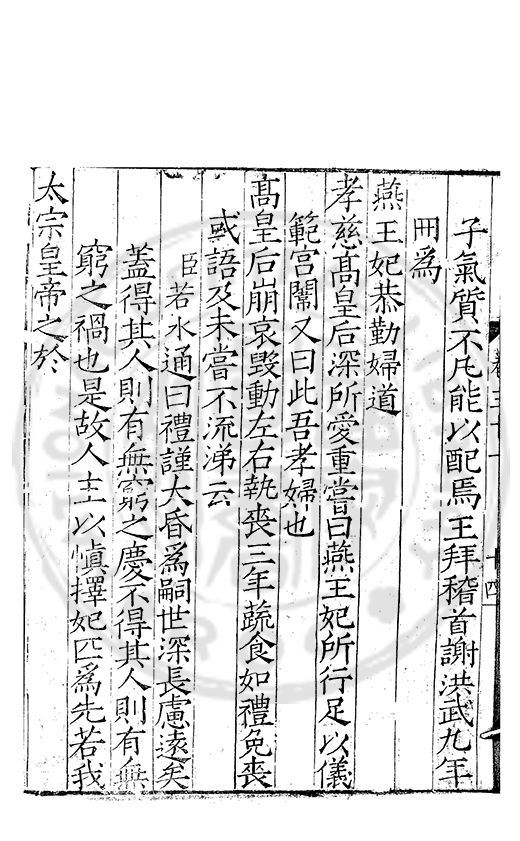 子氣質不凡能以配焉王拜稽首謝洪武九年
冊爲
燕王妃恭勤婦道
孝慈高皇后深所愛重嘗曰燕王妃所行足以儀
範宫闈又曰此吾孝婦也
高皇后崩哀毀動左右執喪三年蔬食如禮免喪
或語及未嘗不流涕云
臣若水通曰禮謹大昏爲嗣世深長慮遠矣
蓋得其人則有無窮之慶不得其人則有無
窮之禍也是故人主以慎擇妃匹爲先若我
太宗皇帝之於